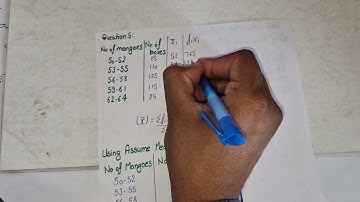 Question 5:
No of mangoes No of boxes xi fixi
50-52 15 51 765
53-55 110
56-58 135
59-61 115
62-64 25
(x̄) = Σf
Using Assume Mea
No of Mangoes No
50-52
53-55
56-58